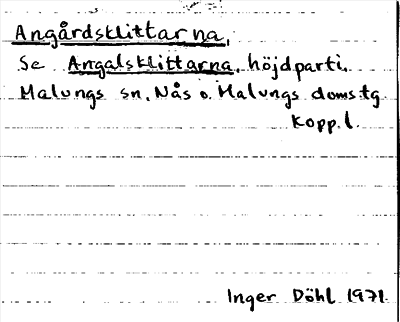 Angårdsklittarna,
Se Angalsklittarna, höjdparti,
Malungs sn, Nås o. Malungs domstg
Kopp. l.
Inger Döhl 1971.